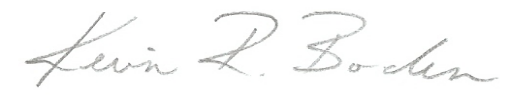 Kevin R. Boden